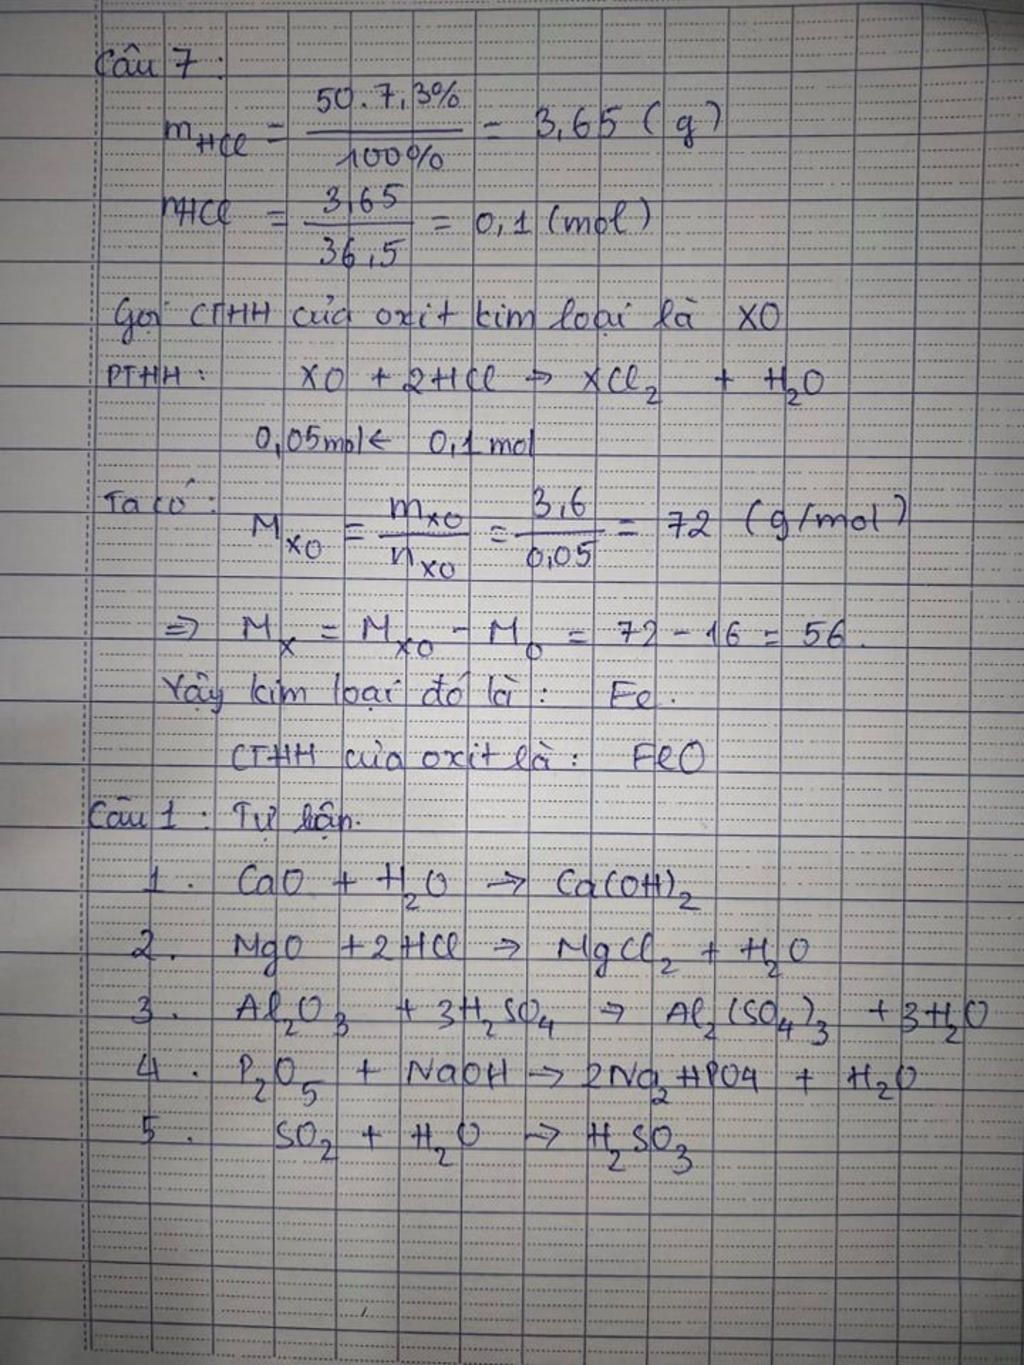 Câu 7:
mHCl = 50.7,3% / 100% = 3,65 (g)
nHCl = 3,65 / 36,5 = 0,1 (mol)
Gọi CTHH của oxit kim loại là XO
PTHH: XO + 2HCl → XCl₂ + H₂O
0,05mol ← 0,1 mol
Ta có: M_XO = m_XO / n_XO = 3,6 / 0,05 = 72 (g/mol)
⇒ M_X = M_XO - M_O = 72 - 16 = 56.
Vậy kim loại đó là: Fe.
CTHH của oxit là: FeO
Câu 1: Tự luận.
1. CaO + H₂O → Ca(OH)₂
2. MgO + 2HCl → MgCl₂ + H₂O
3. Al₂O₃ + 3H₂SO₄ → Al₂(SO₄)₃ + 3H₂O
4. P₂O₅ + NaOH → 2Na₂HPO4 + H₂O
5. SO₂ + H₂O → H₂SO₃